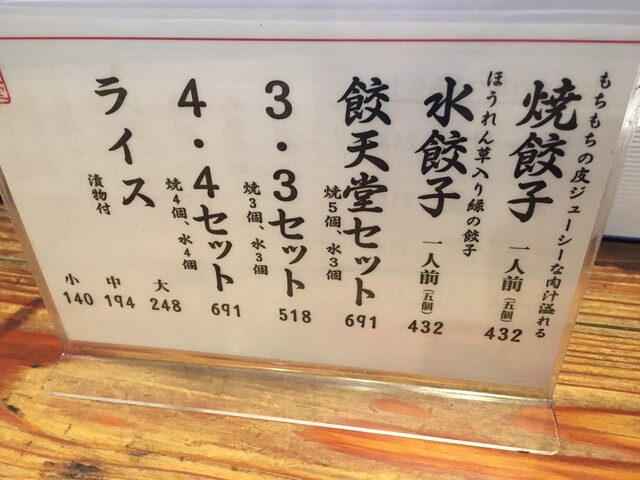 もちもちの皮ジューシーな肉汁溢れる
焼餃子 一人前(五個) 432
ほうれん草入り緑の餃子
水餃子 一人前(五個) 432
餃天堂セット 691
焼5個、水3個
3・3セット 518
焼3個、水3個
4・4セット 691
焼4個、水4個
ライス
漬物付
大 248
中 194
小 140